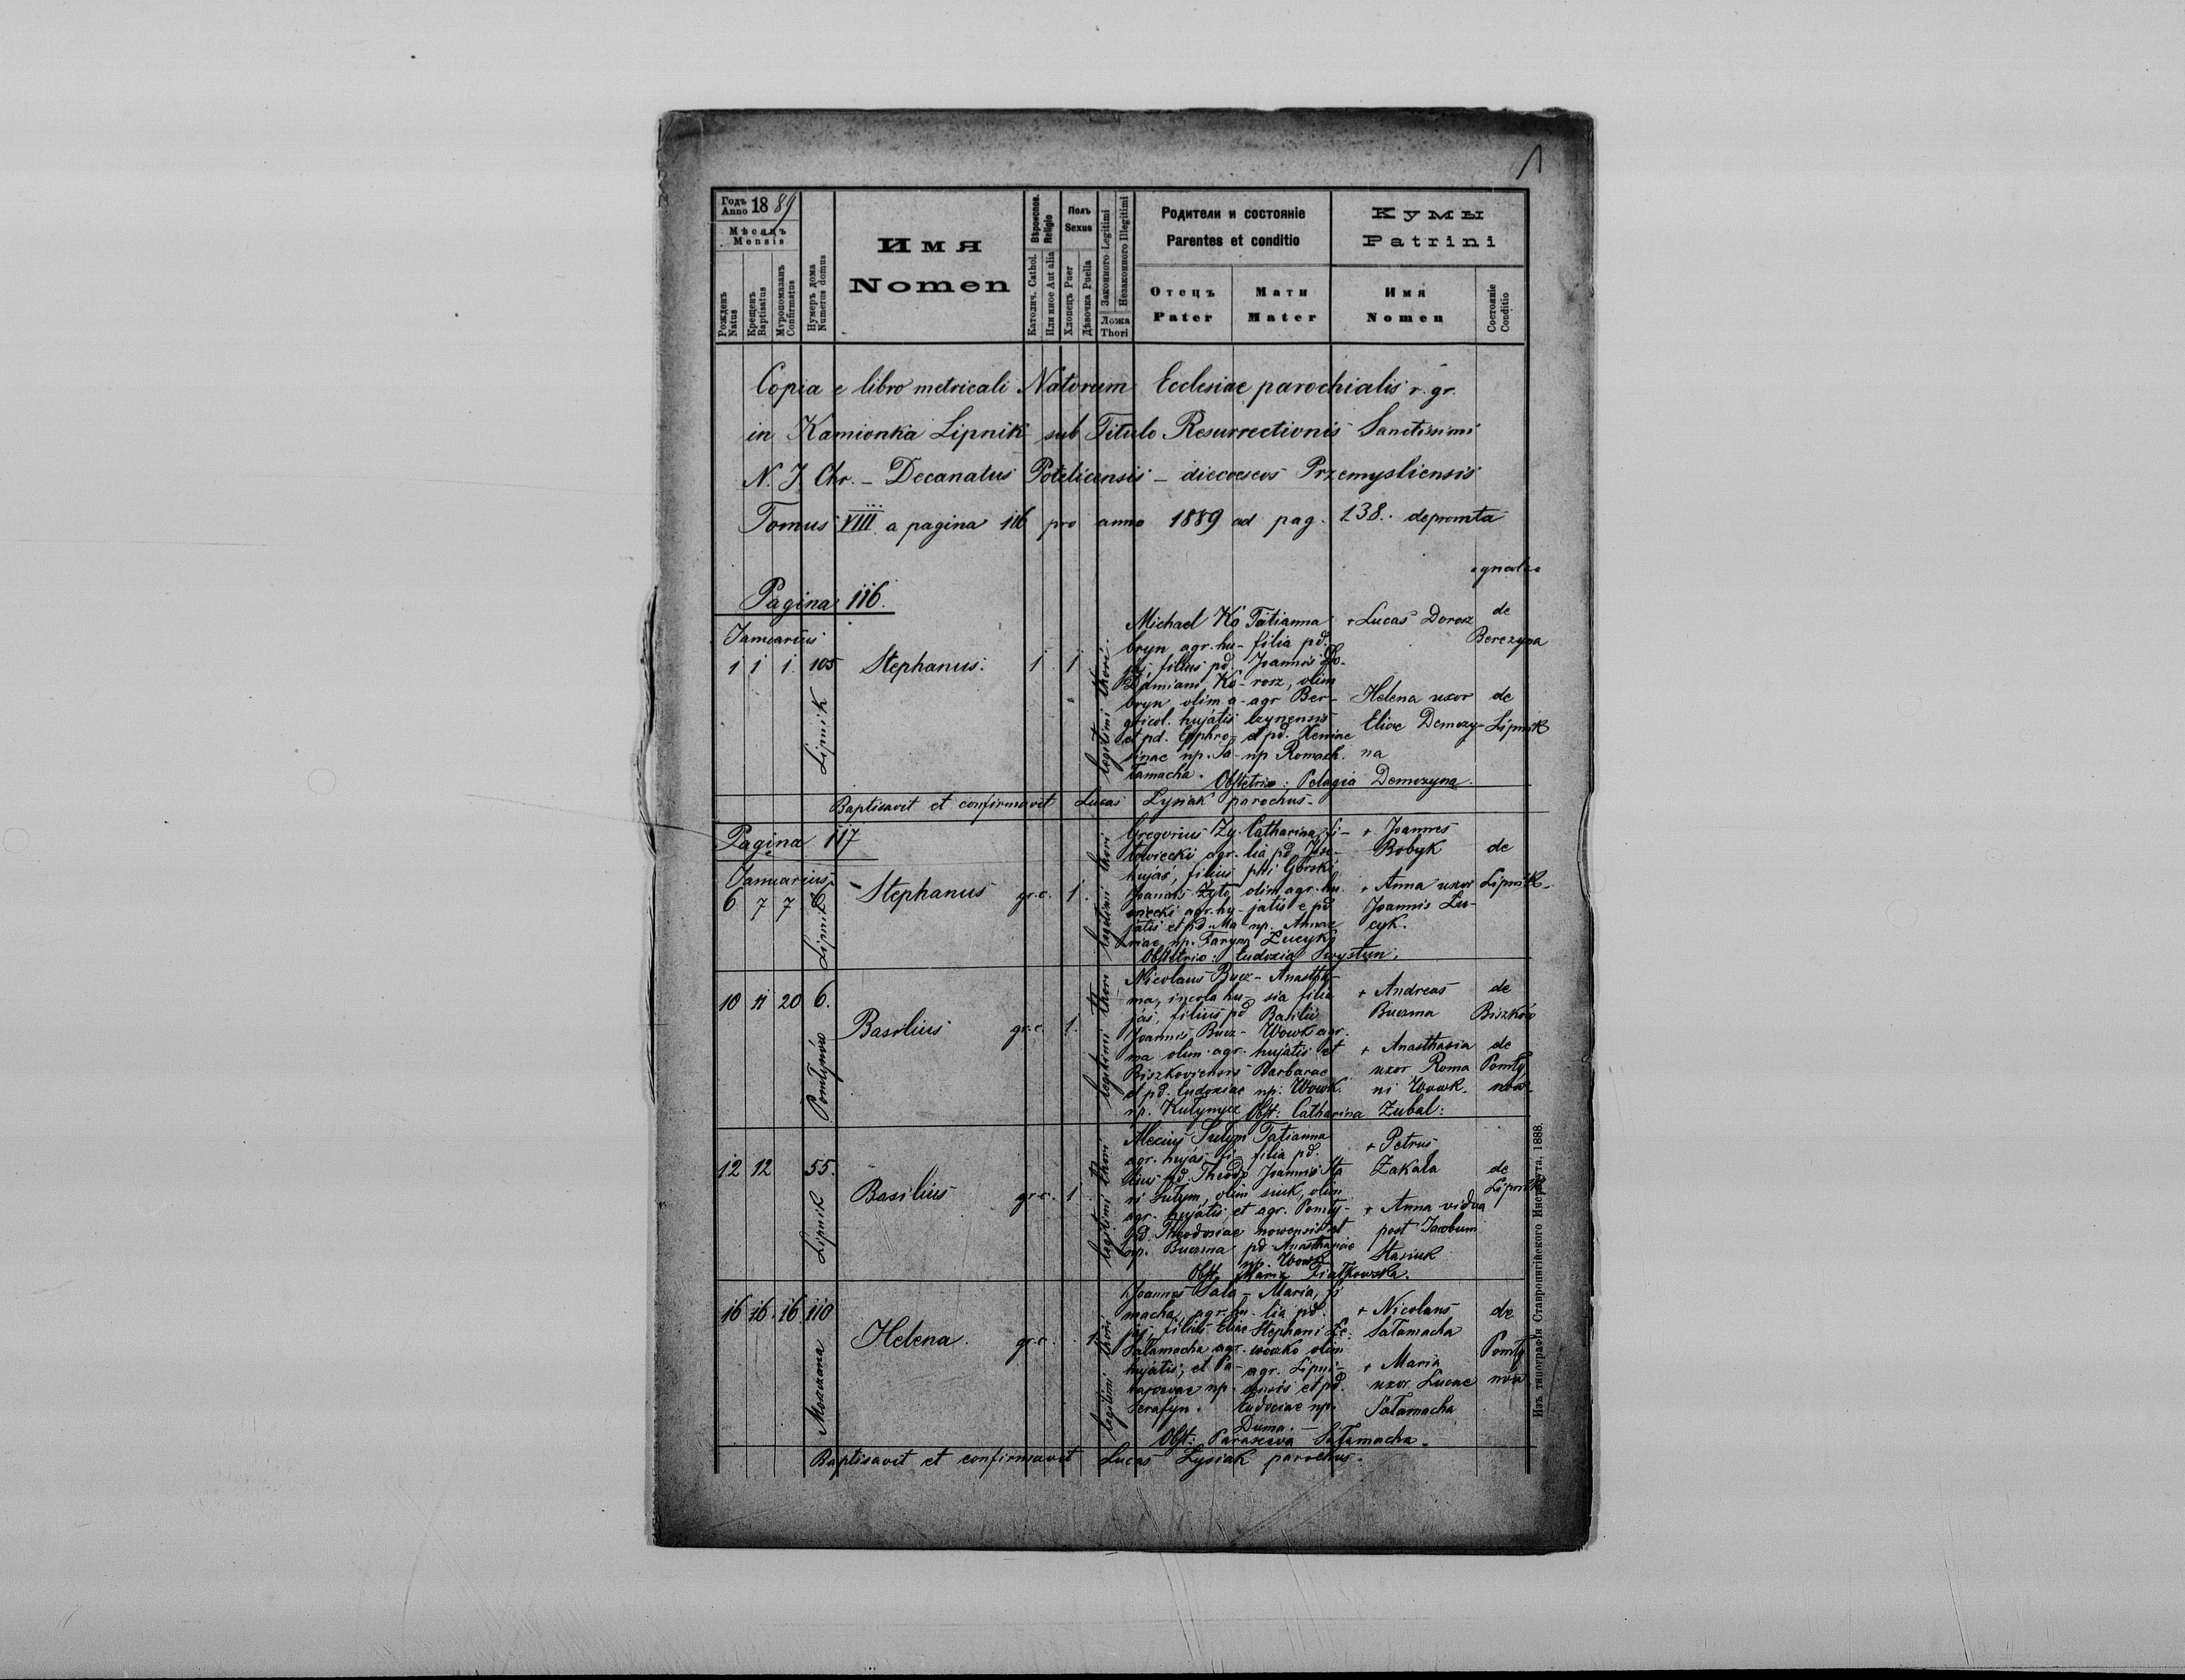 1
Годъ Anno 1889
Мѣсяцъ
Mensis
Рожденъ Natus
Крещенъ Baptisatus
Мѵропомазанъ Confirmatus
Нумеръ дома Numerus domus
Имя
Nomen
Вѣроиспов. Religio
Католич. Cathol.
Или иное Aut alia
Полъ
Sexus
Хлопецъ Puer
Дѣвочка Puella
Законного Legitimi
Незаконного Illegitimi
Ложа
Thori
Родители и состояніе
Parentes et conditio
Отецъ
Pater
Мати
Mater
Кумы
Patrini
Имя
Nomen
Состояніе
Conditio
Copia e libro metricali Natorum Ecclesiae parochialis r. gr.
in Kamionka Lipnik sub Titulo Resurrectionis Sanctissimi
N. J. Chr. - Decanatus Potelicensis - dioeceseos Przemysliensis
Tomus VIII. a pagina 116 pro anno 1889 ad pag. 138. depromta
Pagina 116.
Januarius
1 1 1 105
Lipnik
Stephanus. 1 1
legitimi thori
Michael Ko-
bryn agr. hu-
jas, filius pd.
Damiani Ko-
bryn olim a-
gricol. hujatis
et pd. Ephro-
sinae np. Sa-
lamacha.
Tatianna
filia pd.
Joannis Do-
rosz, olim
agr Ber-
ezynensis
et pd. Xeniae
np Romach.
+ Lucas Dorosz
de
Berezyna
Helena uxor
Eliae Demczy-
na
de
Lipnik
Obstetrix: Pelagia Demczyna.
Baptisavit et confirmavit Lucas Łysiak parochus-
Pagina 117
Januarius
6 7 7
Lipnik
Stephanus gr.c. 1.
legitimi thori
Gregorius Zy-
towiecki agr.
hujas, filius
Joannis Żyto-
wiecki agr. hu-
jatis et pd Ma-
riae np. Faryna
Catharina, fi-
lia pd
Górski
olim agr. hu-
jatis e pd
np. Annae
Łucyk
+ Joannes
Bobyk
+ Anna uxor
Joannis Łu-
cyk.
de
Lipnik-
Obstetrix: Eudoxia Swystun.
10 11 20 6.
Pomłynów
Basilius gr.c. 1.
legitimi thori
Nicolaus Bucz-
ma, incola hu-
jas, filius pd
Joannis Bucz-
ma olim agr.
Biszkoviensis
et pd. Eudoxiae
np. Kułynycz
Anastha-
sia filia
Basilii
Wowk agr.
hujatis et
Barbarae
np. Wowk.
+ Andreas
Buczma
de
Biszków
+ Anasthasia
uxor Roma
ni Wowk.
de
Pomły
nów-
Obst: Catharina Zubal:
12 12 55.
Lipnik
Basilius gr.c. 1
legitimi thori
Alexius Sułym
agr. hujas, fi-
lius pd. Theodo
ri Sułym, olim
agr. hujatis, et
pd. Theodosiae
np. Buczma
Tatianna
filia pd.
Joannis Sta
siuk, olim
agr. Pomły-
nowensis et
pd Anasthasiae
np. Wowk
+ Petrus
Zakała
+ Anna vidua
post Jacobum
Stasiuk
de
Lipnik
Obst: Maria Fiałkowska.
16 16. 16. 110
Moszczana
Helena. gr.c. 1
legitimi thori
Joannes Sała-
macha, agr. hu-
jas, filius Eliae
Sałamacha agr.
hujatis, et Pa-
rascevae np.
Serafyn.
Maria, fi
lia pd.
Stephani Le-
woczko olim
agr. Lipni-
censis et pd.
Eudociae np.
Duma.
+ Nicolaus
Sałamacha
+ Maria
uxor Lucae
Sałamacha
de
Pomły
nów
Obst: Parasceva Sałamacha.
Baptisavit et confirmavit Lucas Łysiak parochus.
Изъ типографіи Ставропигійского Института, 1888.